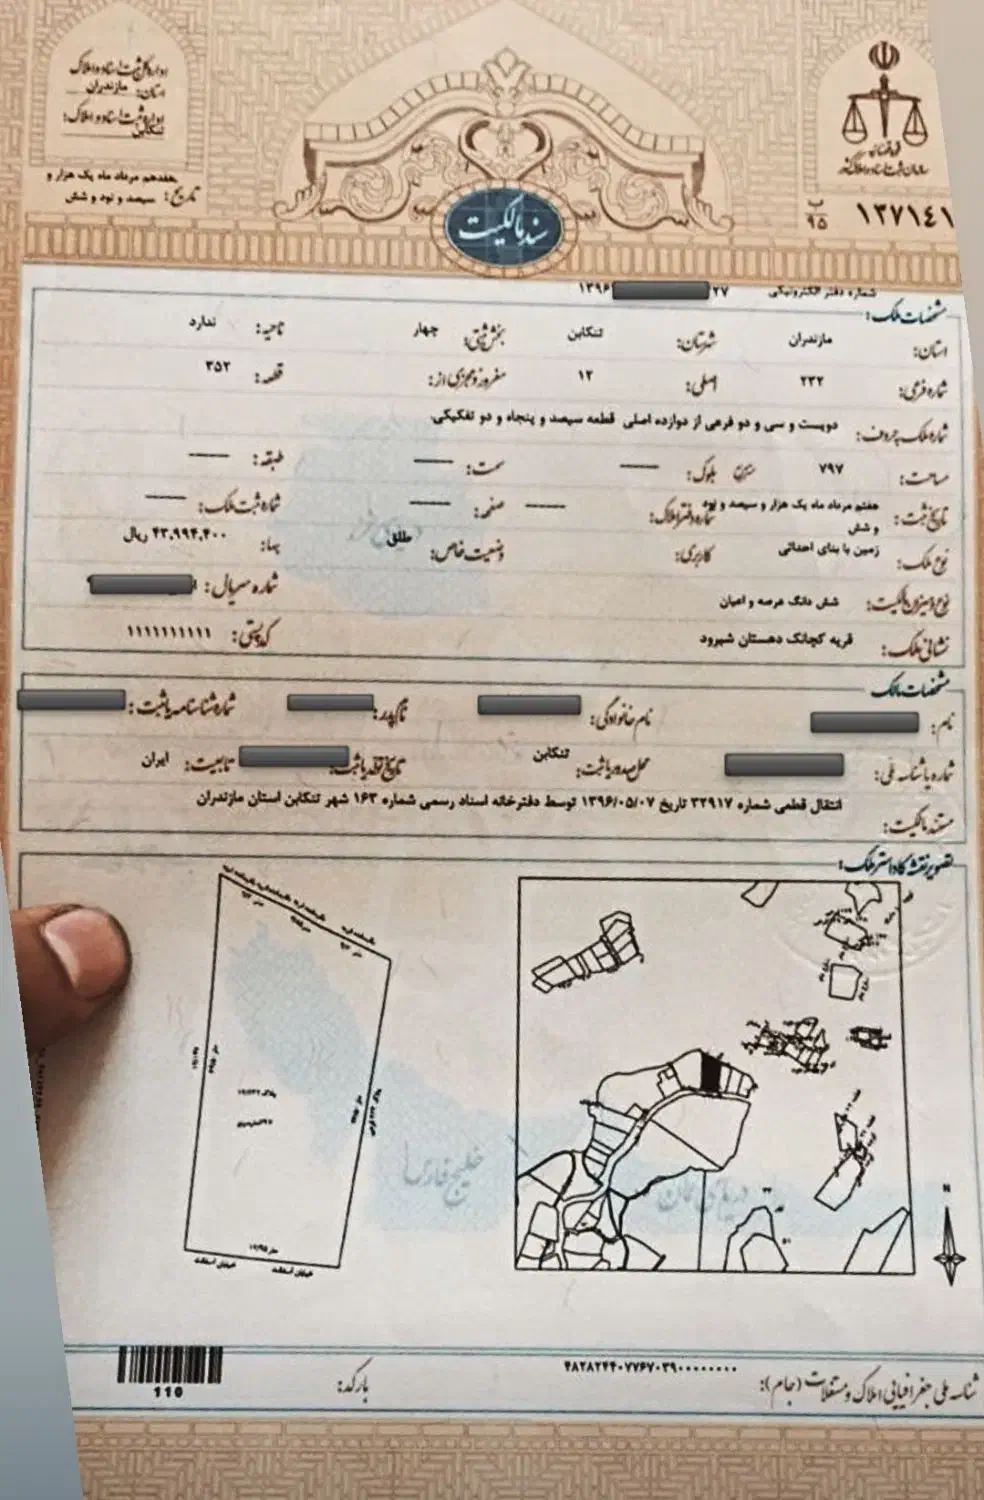 اداره کل ثبت اسناد و املاک
استان: مازندران
اداره ثبت اسناد و املاک:
تنکابن
تاریخ: هفدهم مرداد ماه یک هزار و
سیصد و نود و شش
قوه قضائیه
سازمان ثبت اسناد و املاک کشور
ب
۹۵
۱۳۷۱۴۱
سند مالکیت
شماره دفتر الکترونیکی ۲۷ ۱۳۹۶
مشخصات ملک:
استان: مازندران شهرستان: تنکابن بخش ثبتی: چهار ناحیه: ندارد
شماره فرعی: ۲۳۲ اصلی: ۱۲ مفروز و مجزی از: قطعه: ۳۵۲
شماره ملک به حروف: دویست و سی و دو فرعی از دوازده اصلی قطعه سیصد و پنجاه و دو تفکیکی
مساحت: ۷۹۷ بلوک: سمت: طبقه:
تاریخ ثبت: هفتم مرداد ماه یک هزار و سیصد و نود و شش شماره دفتر املاک: صفحه: شماره ثبت ملک:
نوع ملک: زمین با بنای احداثی کاربری: وضعیت خاص: طلق بها: ۴۳,۹۹۴,۴۰۰ ریال
نوع و میزان مالکیت: شش دانگ عرصه و اعیان شماره سریال:
نشانی ملک: قریه کچانک دهستان شیرود کد پستی: ۱۱۱۱۱۱۱۱۱۱
مشخصات مالک
نام: نام خانوادگی: نام پدر: شماره شناسنامه یا ثبت:
شماره یا شناسه ملی: محل صدور یا ثبت: تنکابن تاریخ تولد یا ثبت: تابعیت: ایران
مستند مالکیت: انتقال قطعی شماره ۳۲۹۱۷ تاریخ ۱۳۹۶/۰۵/۰۷ توسط دفترخانه اسناد رسمی شماره ۱۶۳ شهر تنکابن استان مازندران
تصویر نقشه کاداستر ملک:
دریای خزر
خلیج فارس
دریای عمان
خیابان آسفالت
خیابان آسفالت
N
شناسه ملی جغرافیایی املاک و مستغلات (جام):
۴۸۲۸۲۴۴۰۷۷۶۷۰۳۹۰۰۰۰۰۰۰۰
بارکد:
110